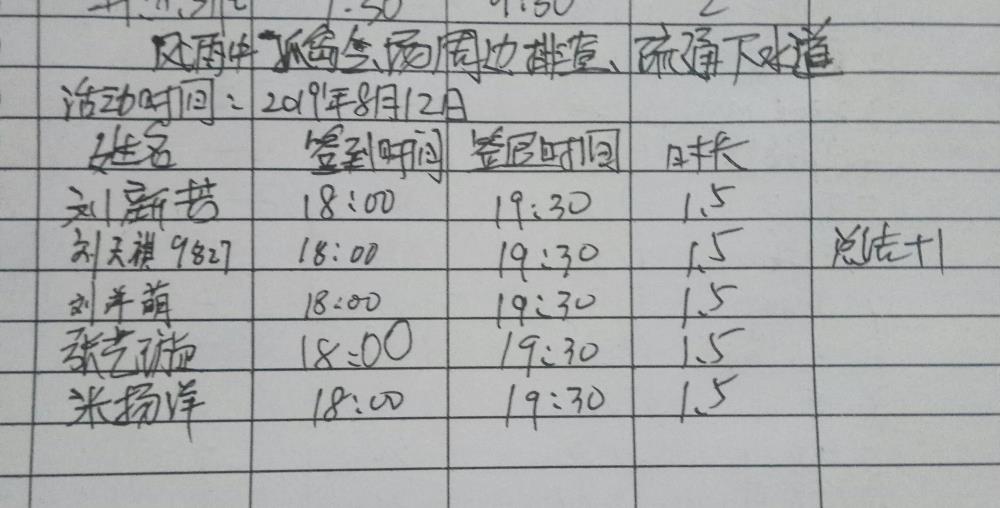 1:30 9:30 2
风雨中 孤岛会场周边排查、疏通下水道
活动时间：2019年8月12日
姓名 签到时间 签尼时间 时长
刘新芸 18:00 19:30 1.5
刘天祺 9827 18:00 19:30 1.5 总结+1
刘洋萌 18:00 19:30 1.5
张艺 18:00 19:30 1.5
米扬洋 18:00 19:30 1.5